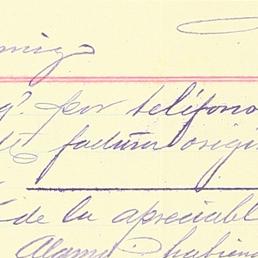 amigo
q? por teléfono
factura origi
de la apreciabl
Alamo habien